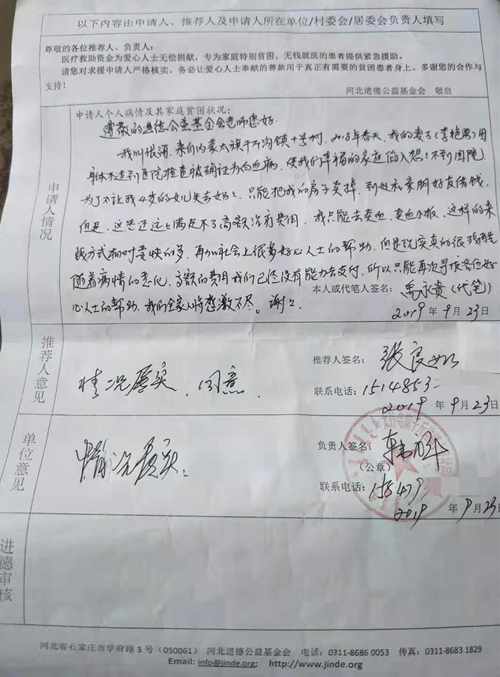 以下内容由申请人、推荐人及申请人所在单位/村委会/居委会负责人填写
尊敬的各位推荐人、负责人：
医疗救助资金为爱心人士无偿捐献，专为家庭特别贫困、无钱就医的患者提供紧急援助。
请您对求援申请人严格核实。务必让爱心人士奉献的善款用于真正有需要的贫困患者身上。多谢您的合作与
支持！
河北进德公益基金会 敬启
申请人情况
申请人个人病情及其家庭贫困状况：
尊敬的进德公益基金会老师您好
2018年春天，我的妻子
身体不适到医院检查被确诊为白血病，使我们幸福的家庭
为了不让我4岁的女儿失去妈妈，只能把我的房子卖掉，到处求亲朋好友借钱，
但是，这些还远远满足不了高额治疗费用，我只能去卖血，
钱方式相对来快的多，再加社会上很多好心人士的帮助，但是
随着病情的恶化，高额的费用我们已经没有能力去支付，所以只能再次寻求各位好
心人士的帮助，我们全家人将感激不尽。谢谢
本人或代笔人签名： (代笔)
2019 年 9 月 23 日
推荐人意见
情况属实，同意
推荐人签名： 张良
联系电话： 1514853
2019 年 9 月 23 日
单位意见
情况属实
负责人签名：
（公章）
联系电话：
2019 年 9 月 23 日
进德审核
河北省石家庄市学府路 3 号（050061） 河北进德公益基金会 电话：0311-8686 0053 传真：0311-8683 1829
Email: info@jinde.org; http://www.jinde.org